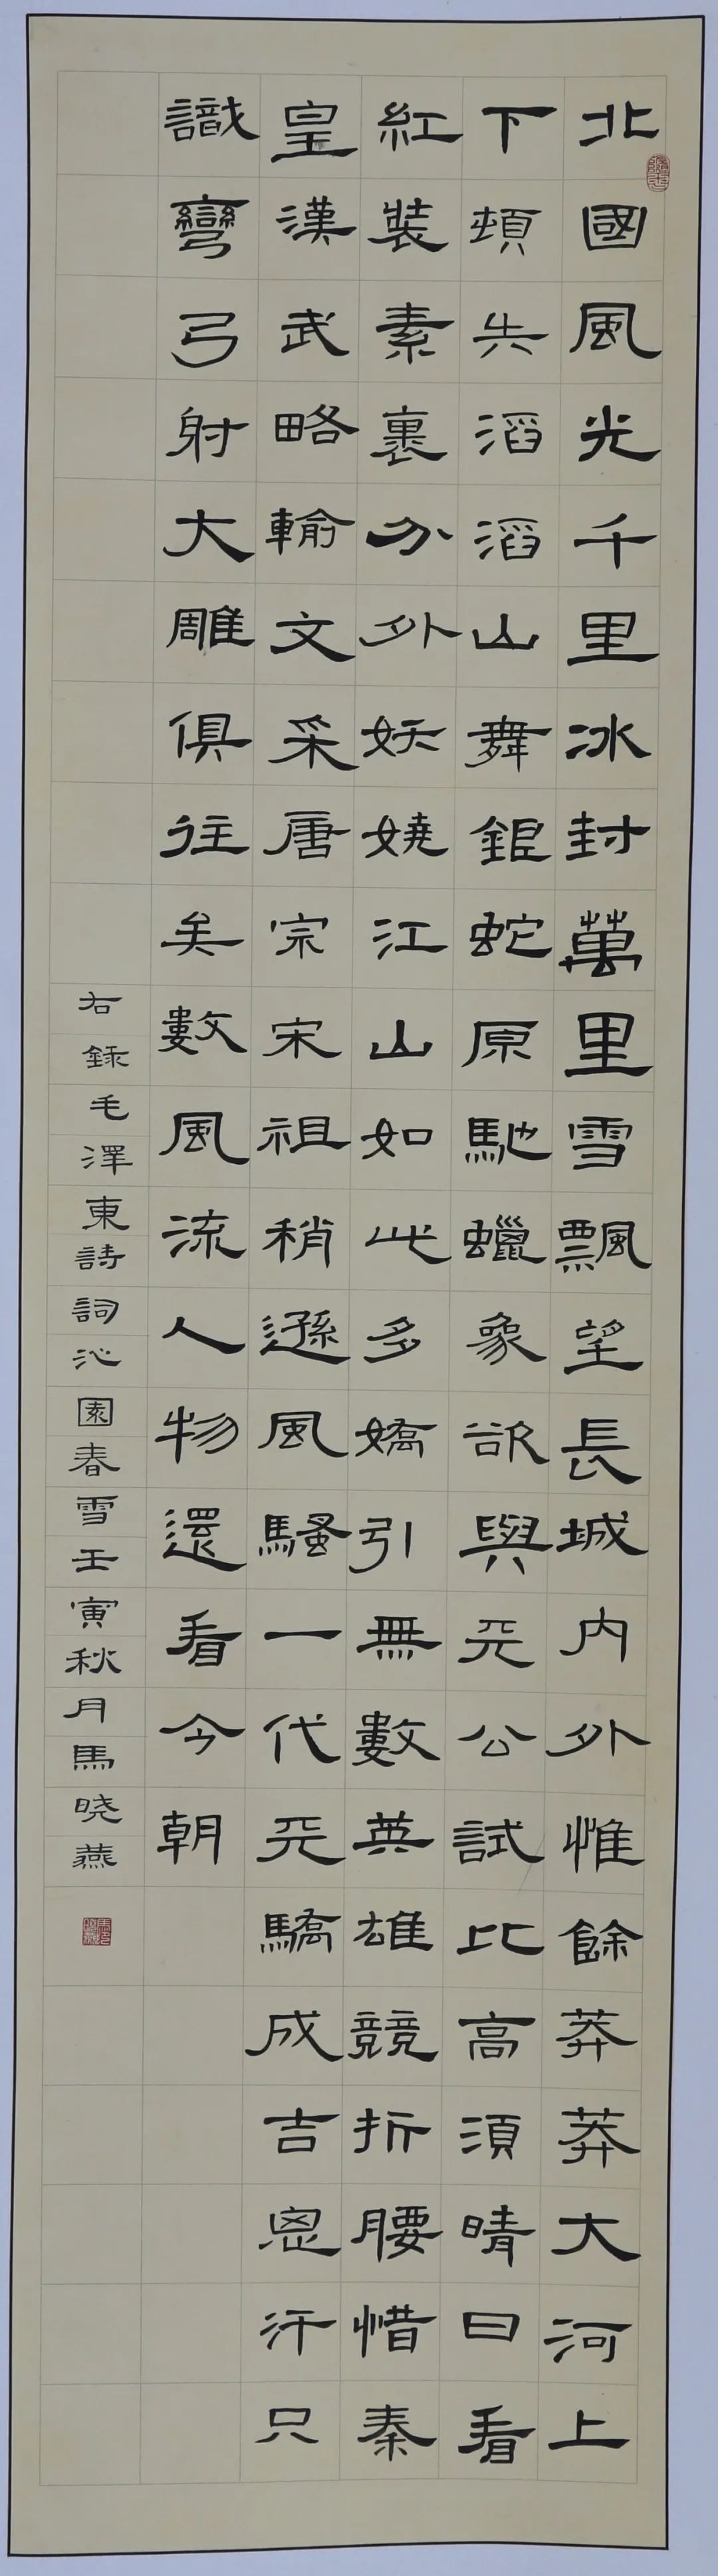 北國風光千里冰封萬里雪飄望長城内外惟餘莽莽大河上
下頓失滔滔山舞銀蛇原馳蠟象欲與天公試比高須晴日看
紅裝素裹分外妖嬈江山如此多嬌引無數英雄競折腰惜秦
皇漢武略輸文采唐宗宋祖稍遜風騷一代天驕成吉思汗只
識彎弓射大雕俱往矣數風流人物還看今朝
右録毛澤東詩詞沁園春雪壬寅秋月馬晓燕